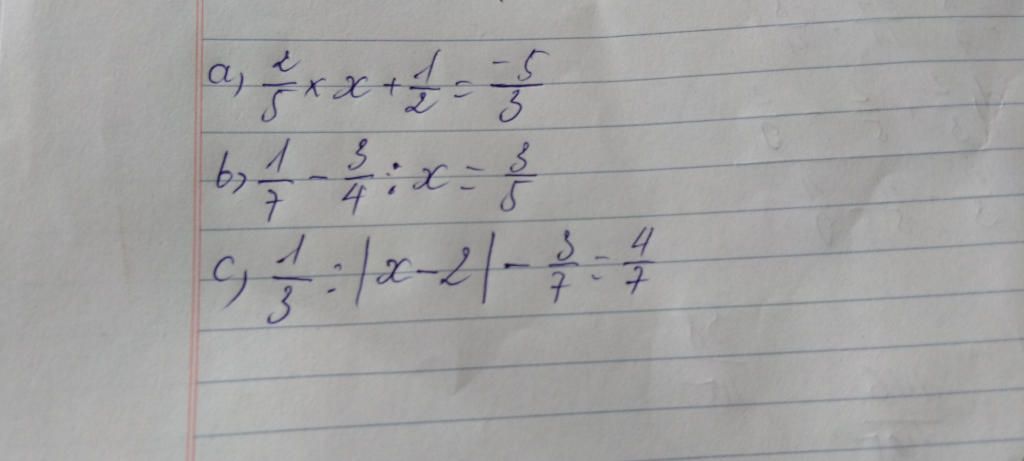 a, 2/5 × x + 1/2 = -5/3
b, 1/7 - 3/4 : x = 3/5
c, 1/3 : |x - 2| - 3/7 = 4/7